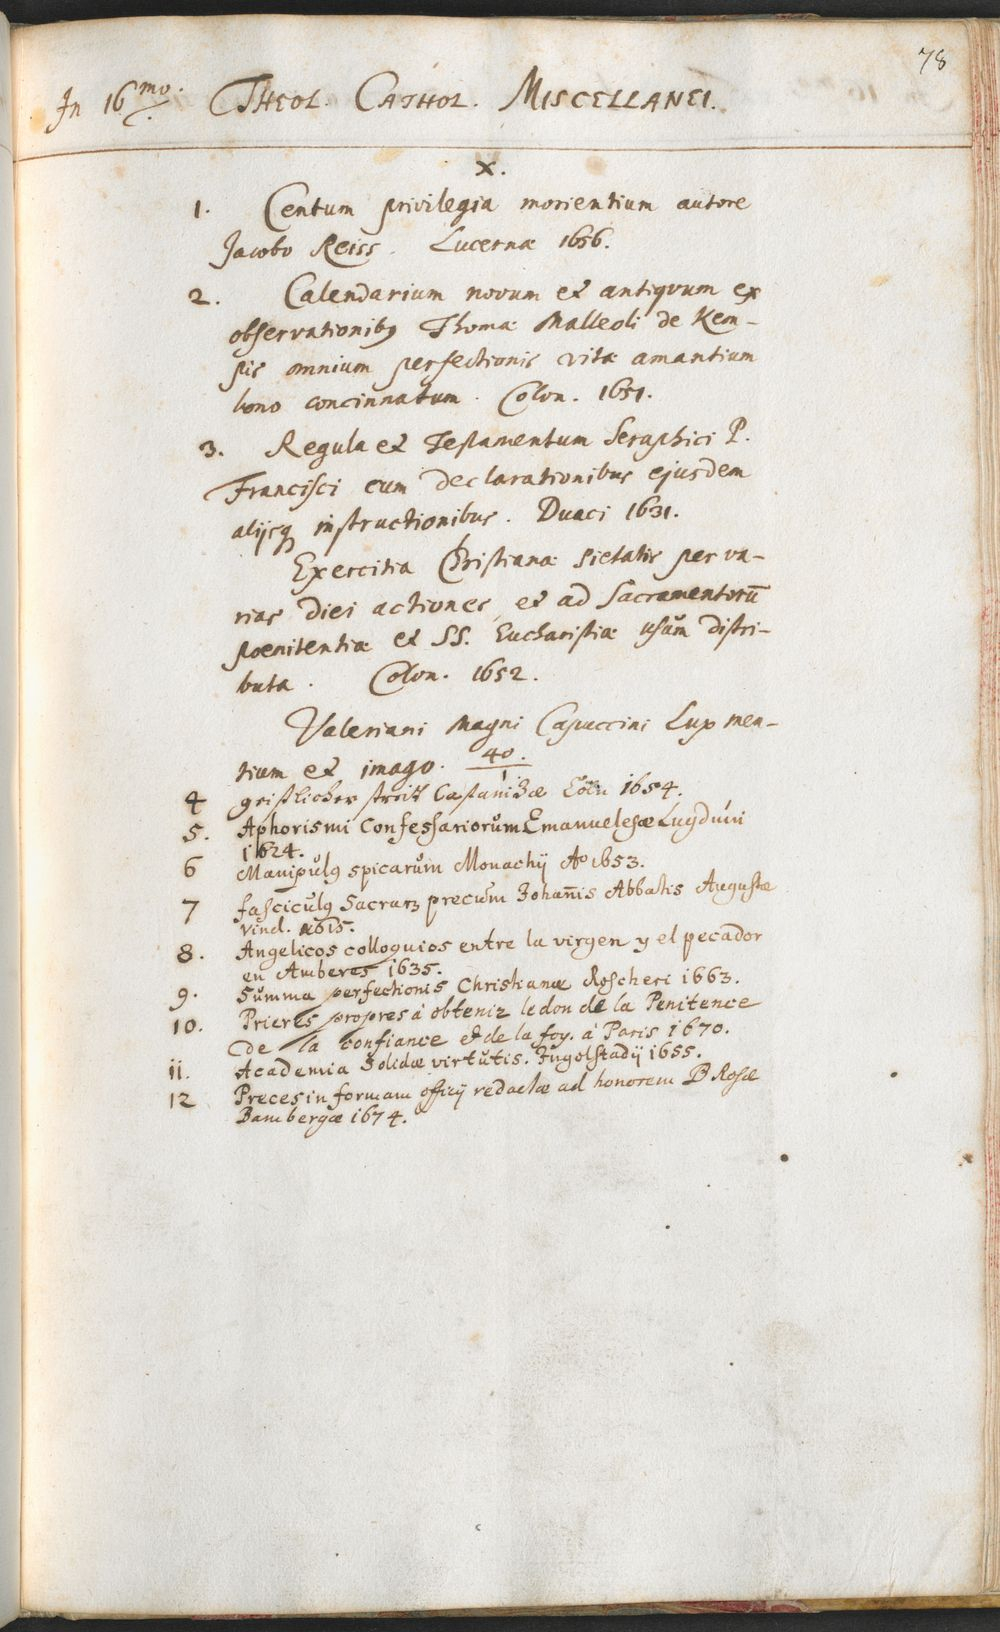 78
In 16mo. THEOL. CATHOL. MISCELLANEI.
X.
1. Centum privilegia morientium autore
Jacobo Reiss. Lucernæ 1656.
2. Calendarium novum et antiqvum ex
observationibꝯ Thomæ Malleoli de Kem-
pis omnium perfectionis vitæ amantium
bono concinnatum. Colon. 1651.
3. Regula et Testamentum Seraphici P.
Francisci cum declarationibus ejusdem
alijsq instructionibus. Duaci 1631.
Exercitia Christianæ pietatis per va-
rias diei actiones, et ad Sacramentorū
poenitentiæ et SS. Eucharistiæ usum distri-
buta. Colon. 1652.
Valeriani Magni Capuccini Lux men-
tium et imago. 40.
1
4 geistlicher streit Castanizæ Cöln 1654.
5. Aphorismi Confessariorum Emanuelesæ Lugduni
1624.
6 Manipulꝯ spicarum Monachij Ao 1653.
7 fasciculꝯ Sacrarꝝ precum Johan̄is Abbatis Augustæ
vind. 1615.
8. Angelicos colloquios entre la virgen y el pecador
en Amberes 1635.
9. Summa perfectionis Christianæ Roscheri 1663.
10. Prieres propres à obtenir le don de la Penitence
de la confiance et de la foy. à Paris 1670.
11. Academia Solidæ virtutis. Ingolstadij 1655.
12 Preces in formam officij redactæ ad honorem B Rosæ
Bambergæ 1674.